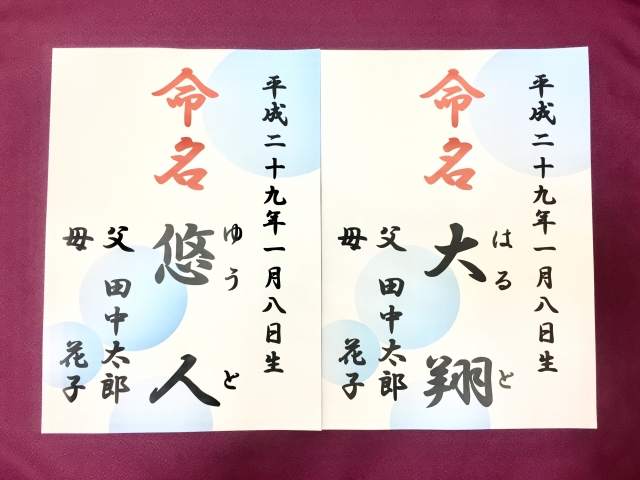 平成二十九年一月八日生
命名
大翔
はると
父 田中太郎
母 花子
平成二十九年一月八日生
命名
悠人
ゆうと
父 田中太郎
母 花子